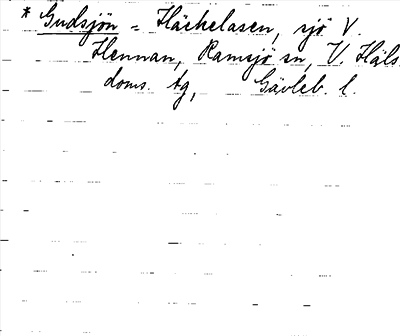 * Gudsjön = Häckelasen, sjö V.
Hennan, Ramsjö sn, V. Häls.
doms. tg, Gävleb. l.